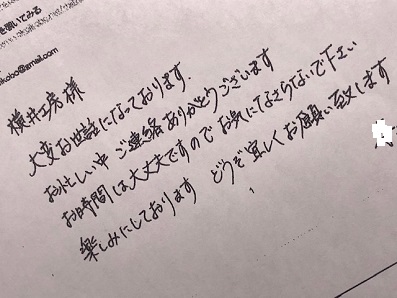 を頼いてみる
ikobo@gmail.com
横井工房 様
大変お世話になっております.
お忙しい中 ご連絡ありがとうございます
お時間は大丈夫ですので お気になさらないで下さい
楽しみにしております どうぞ宜しくお願い致します